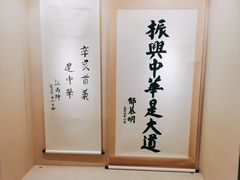 振興中華是大道
郁慕明
辛亥首義
建中華